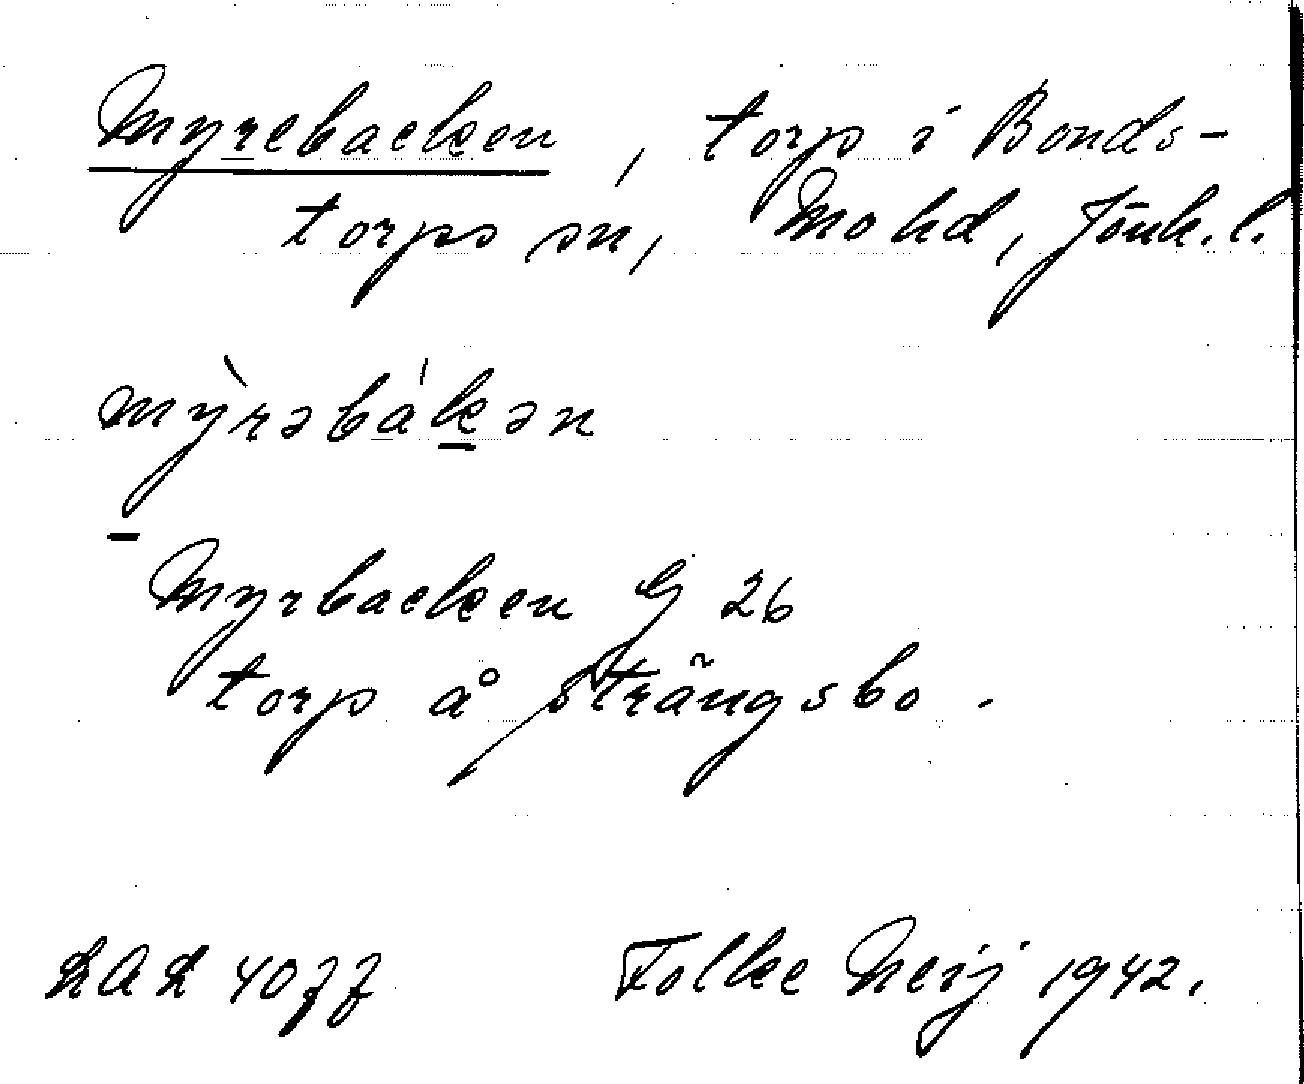 Myrebacken, torp i Bonds-
torps sn, Mo hd, Jönk. l.
mỳ̖rəbákən
Myrbacken G 26
torp å Strängsbo.
LAL 4077
Folke Neij 1942.